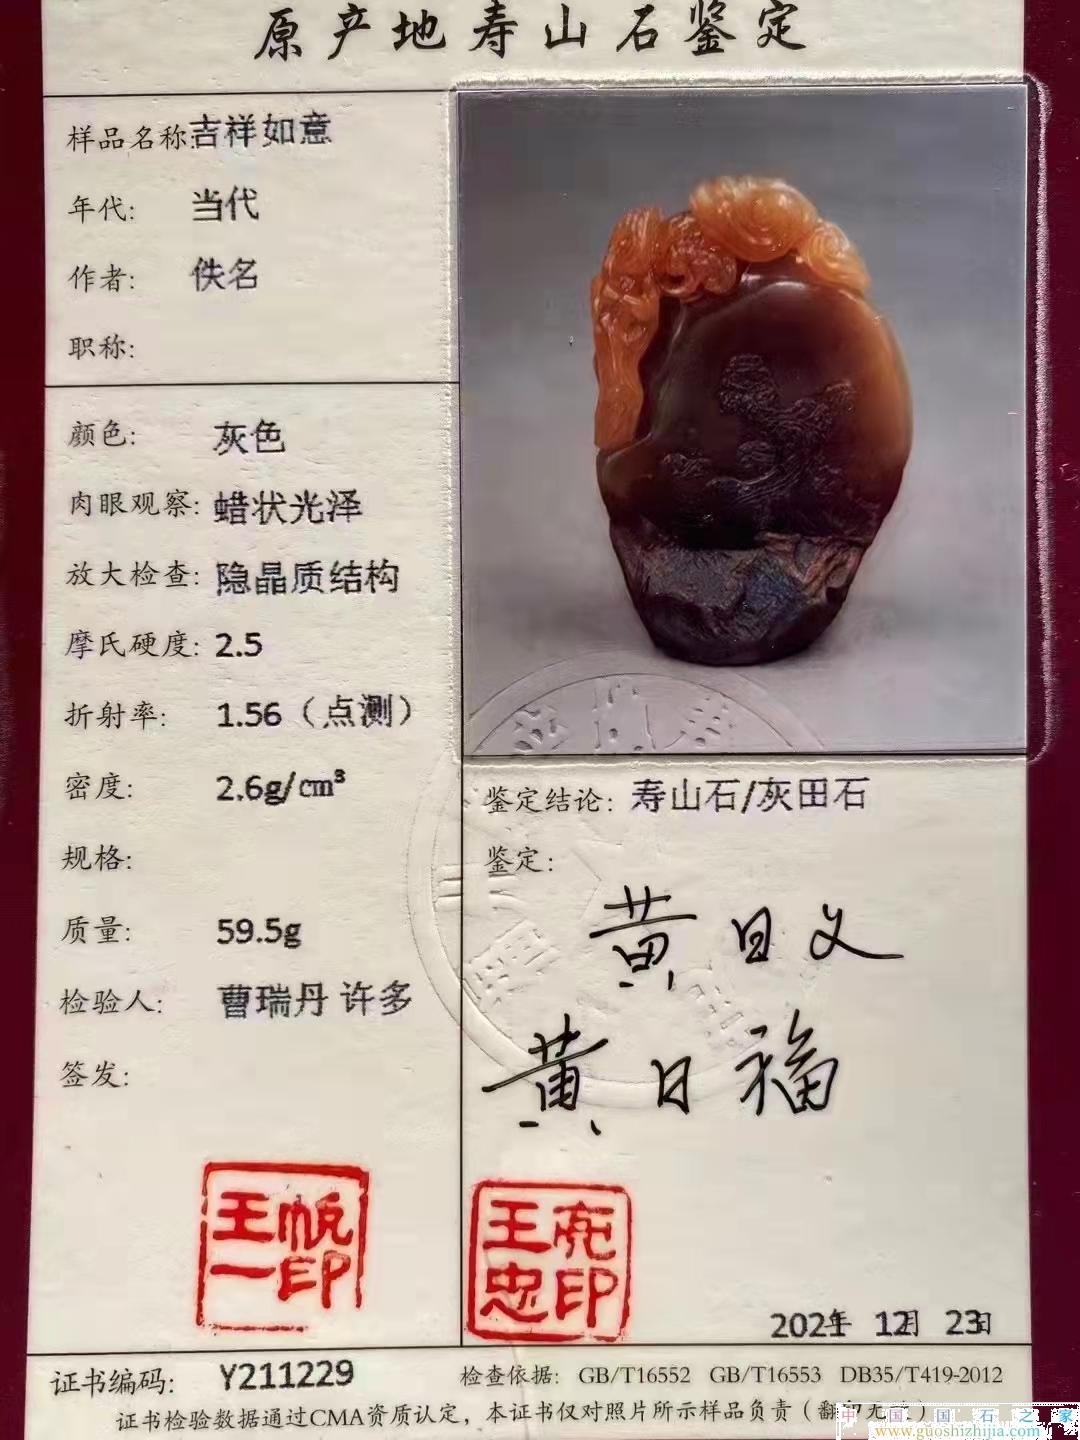 原产地寿山石鉴定
样品名称:吉祥如意
年代: 当代
作者: 佚名
职称:
颜色: 灰色
肉眼观察: 蜡状光泽
放大检查: 隐晶质结构
摩氏硬度: 2.5
折射率: 1.56（点测）
密度: 2.6g/cm³
规格:
质量: 59.5g
检验人: 曹瑞丹 许多
签发:
王帆
一印
鉴定结论: 寿山石/灰田石
鉴定:
黄日文
黄日福
王亮
忠印
2021年 12月 23日
证书编码: Y211229
检查依据: GB/T16552 GB/T16553 DB35/T419-2012
证书检验数据通过CMA资质认定，本证书仅对照片所示样品负责（翻印无
中国国石之家
www.guoshizhijia.com